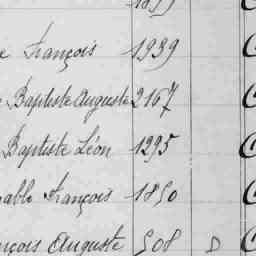 François 1939
Baptiste Auguste 2167
Baptiste Léon 1295
François 1850
Auguste 508 D